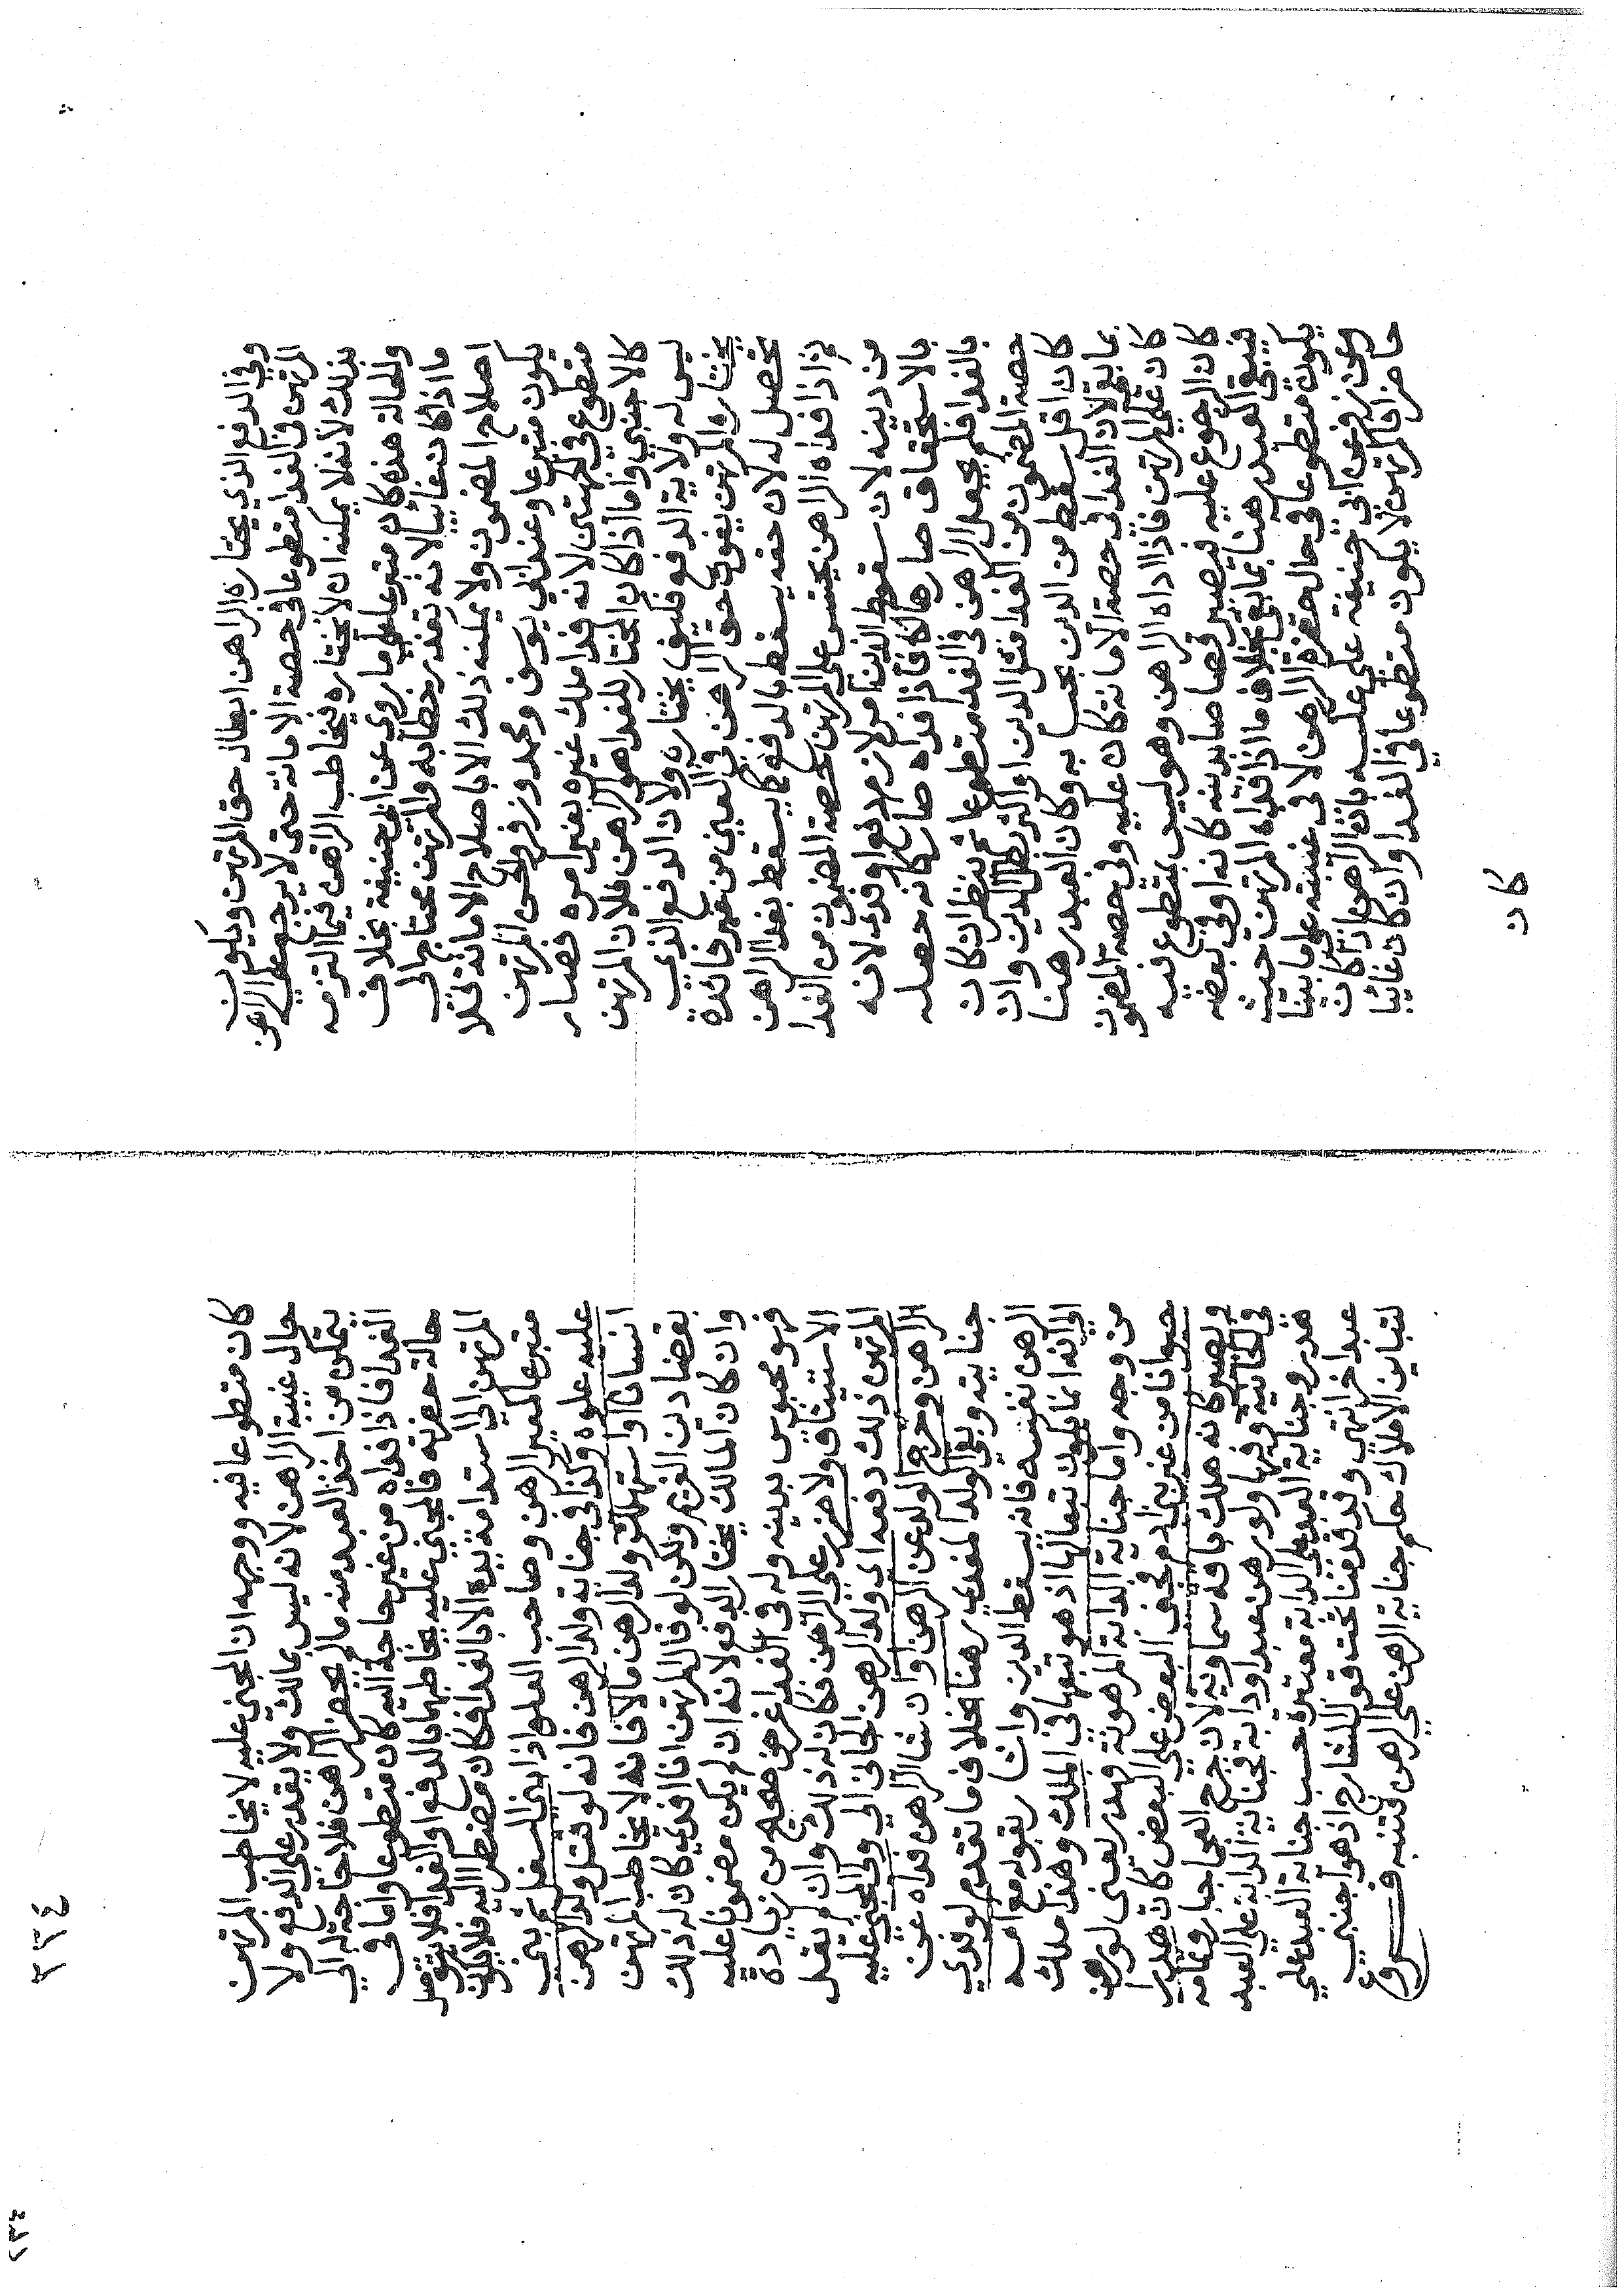 وفي الدفع الذي يختاره الراهن ابطال حق المرتهن ويكون
المرتهن في الفدا متطوعا في حصة الامانة حتى لا يرجع على الراهن
بذلك لانه لا يمكنه ان لا يختاره فيخاطب الراهن فيما التزمه
والحالة هذه كان متبرعا على ما روي عن ابي حنيفة بخلاف
ما اذا كان غائبا لانه تعذر خطابه والمرتهن محتاج الى
اصلاح المضمون ولا يمكنه ذلك الا باصلاح الامانة فلا
يكون متبرعا وعند ابي يوسف ومحمد وزفر والحسن المرتهن
متطوع في الوجهين لانه فدا ملك غيره بغير امره فصار
كالاجنبي واما اذا كان المختار للفدا هو الراهن فلان المرتهن
ليس له ولاية الدفع فكيف يختاره ولان الدفع الذي
يختاره المرتهن يفوت حق الراهن في العين من غير فائدة
تحصل له لان حقه يسقط بالدفع كما يسقط بفدا الراهن
ثم اذا فداه الراهن يحتسب على المرتهن حصة المضمون من الفدا
من دينه لان سقوط الدين امر لازم دفع او فدى لانه
بالاستحقاق صار هالكا فاذا فداه صار كانه حصله
بالفدا فلم يجعل الراهن في الفدا متطوعا ثم ينظر ان كان
حصة المضمون من الفدا مثل الدين او اكثر بطل الدين وان
كان اقل سقط من الدين بحسابه وكان العبد رهنا
بما بقي لان الفدا في حصة الامانة كان عليه وفي حصة المضمون
كان على المرتهن فاذا اداه الراهن وهو ليس بمتطوع فيه
كان الرجوع عليه فيصير قصاصا بدينه كانه اوفى بعضه
فيبقى العبد رهنا بما بقي بخلاف ما اذا فداه المرتهن حيث
يكون متطوعا في حال حضرة الراهن لا في غيبته على ما بينا
وعن زفر عن ابي حنيفة على عكسه بان الراهن اذا كان
حاضرا فالمرتهن لا يكون متطوعا في الفدا وان كان غائبا
كان
كان متطوعا فيه ووجهه ان المجني عليه لا يخاطب المرتهن
حال غيبة الراهن لانه ليس بمالك ولا يقدر على الدفع ولا
يتمكن من اخذ العبد منه ما لم يحضر الراهن فلا حاجة له الى
الفدا فاذا فداه من غير حاجة اليه كان متطوعا واما في
حالة حضرته فالمجني عليه يخاطبهما بالدفع او الفدا فلا يتوصل
المرتهن الى استدامة يده الا بالفدا فكان مضطرا اليه فلا يكون
متبرعا كمعير الرهن وصاحب العلو اذا بنى السفل ثم بنى
عليه علوه وكذا في جناية ولد الرهن فانه لو قتل ولد الرهن
انسانا او استهلك ولد الرهن مالا فانه لا يخاطب المرتهن
بقضا دين الغريم ولكن لو قال المرتهن انا افدي كان له ذلك
وان كان المالك يختار الدفع لانه ان لم يكن مضمونا عليه
فهو محبوس بدينه وله في الفدا غرض صحيح من زيادة
الاستيثاق ولا ضرر على الراهن فكان له ذلك وان لم يقل
المرتهن ذلك دفعه اي ولد الرهن الجاني الى ولي المجني عليه
الراهن وخرج الولد عن الرهن وان شا الراهن فداه عن
جنايته وبقي الولد المفدي رهنا بخلاف ما تقدم لو فدي
الرهن نفسه فانه يسقط الدين واشار بقوله مع امه
الى انه انما يكون تبعا لها اذ هو تبعها في الملك وهذا ملك
من وجه واما جناية الدابة المرهونة فهدر يعني لو رهن
حيوانا من غير بني ادم فجنى البعض على البعض كان هدرا
ويصير كانه هلك بافة سماوية لان جرح العجما جبار وتمامه
في الخانية وفيها ولو رهن عبدا ودابة فجناية الدابة على العبد
هدر وجناية العبد على الدابة معتبرة حسب جناية العبد على
عبد اخر انتهى وقد قدمنا تحت قول الشارح اذ هو اجنبي
لتباين الاملاك حكم جناية الرهن على الرهن فتنبه فروع
٣٣٤
٣٣٧